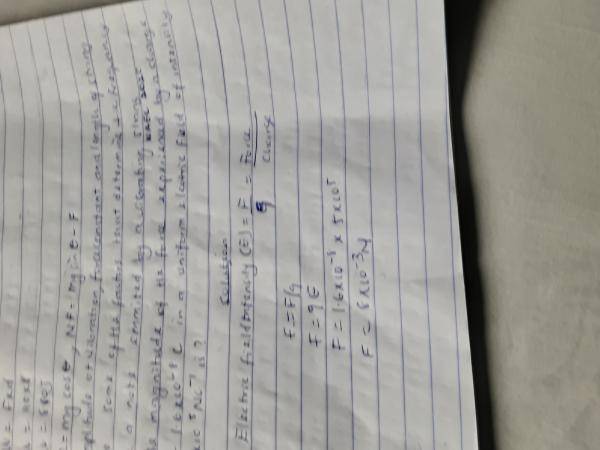 = Fxd
= mg cosθ, NF = mg sinθ - F
amplitude of vibration, force constant and length of string
some of the factors that determine the frequency
a note emmited by a vibrating string
magnitude of the force experienced by a charge
1.6x10⁻⁸ C in a uniform electric field of intensity
⁵ NC⁻¹ is?
Solution
Electric field intensity (E) = F = Force
q Charge
E = F/q
F = qE
F = 1.6x10⁻⁸ x 5x10⁵
F = 8x10⁻³N